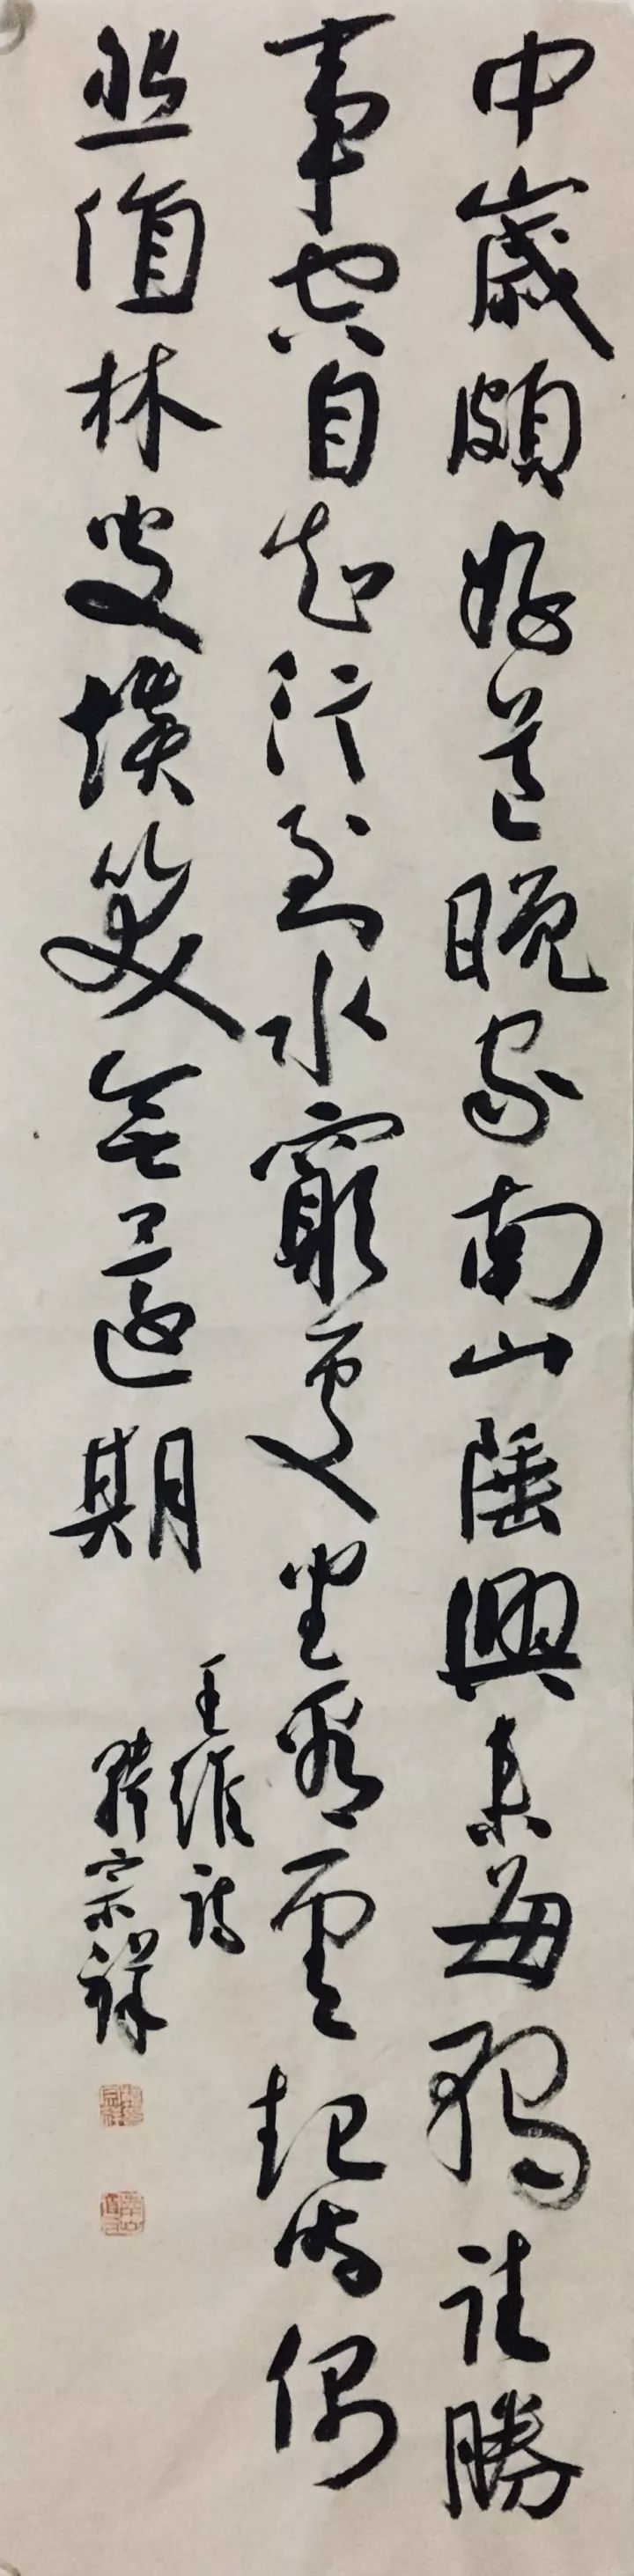 中歲頗好道晚家南山陲興来每獨往勝
事空自知行到水窮處坐看雲起時偶
然值林叟談笑無還期
王維詩
韓宗祥